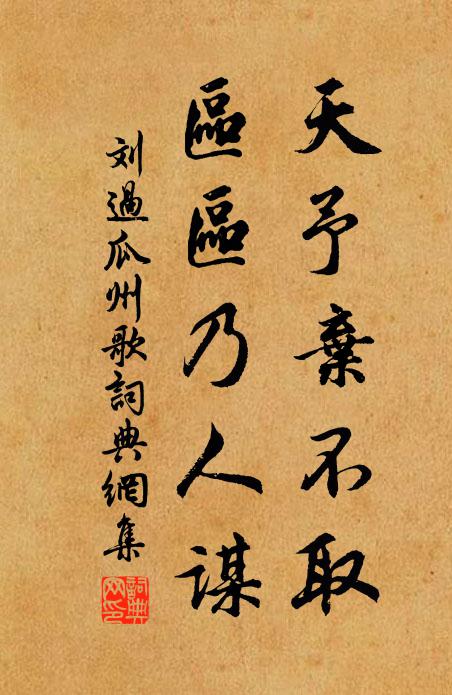 天予棄不取
區區乃人謀
刘過瓜州歌詞典網集
詞典網印